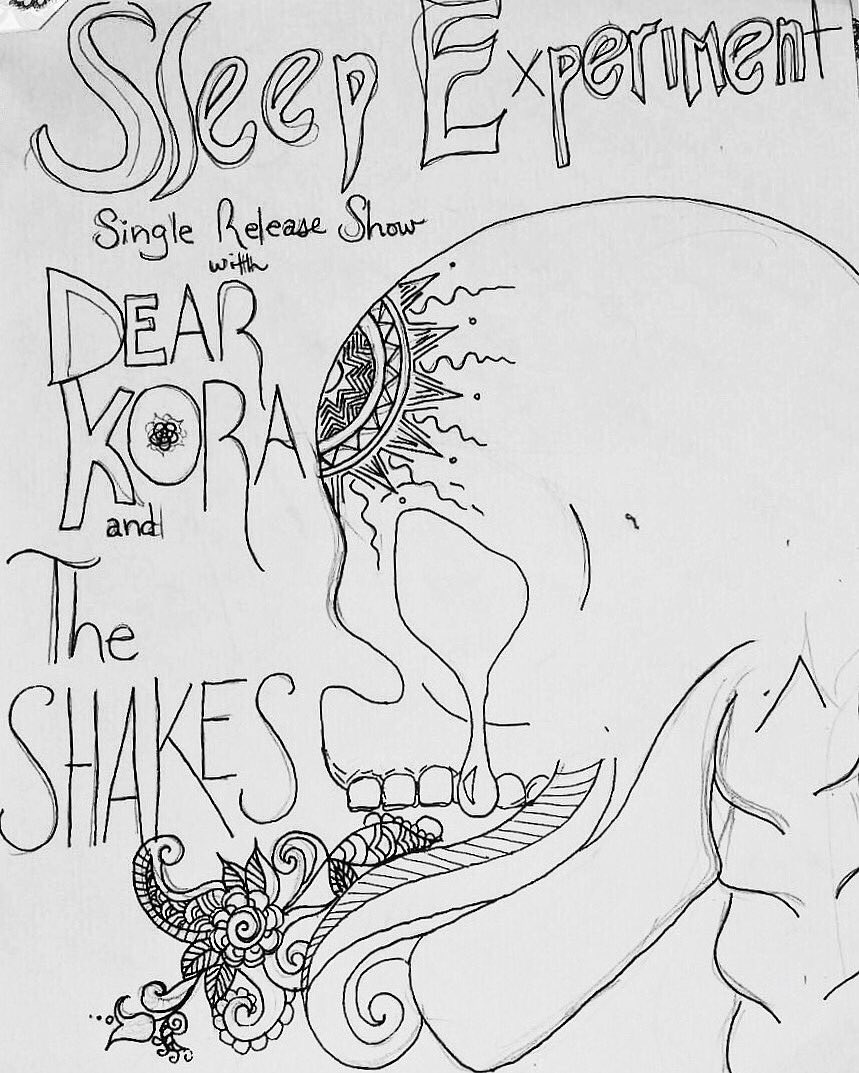 Sleep Experiment
Single Release Show
with
DEAR
KORA
and
The
SHAKES